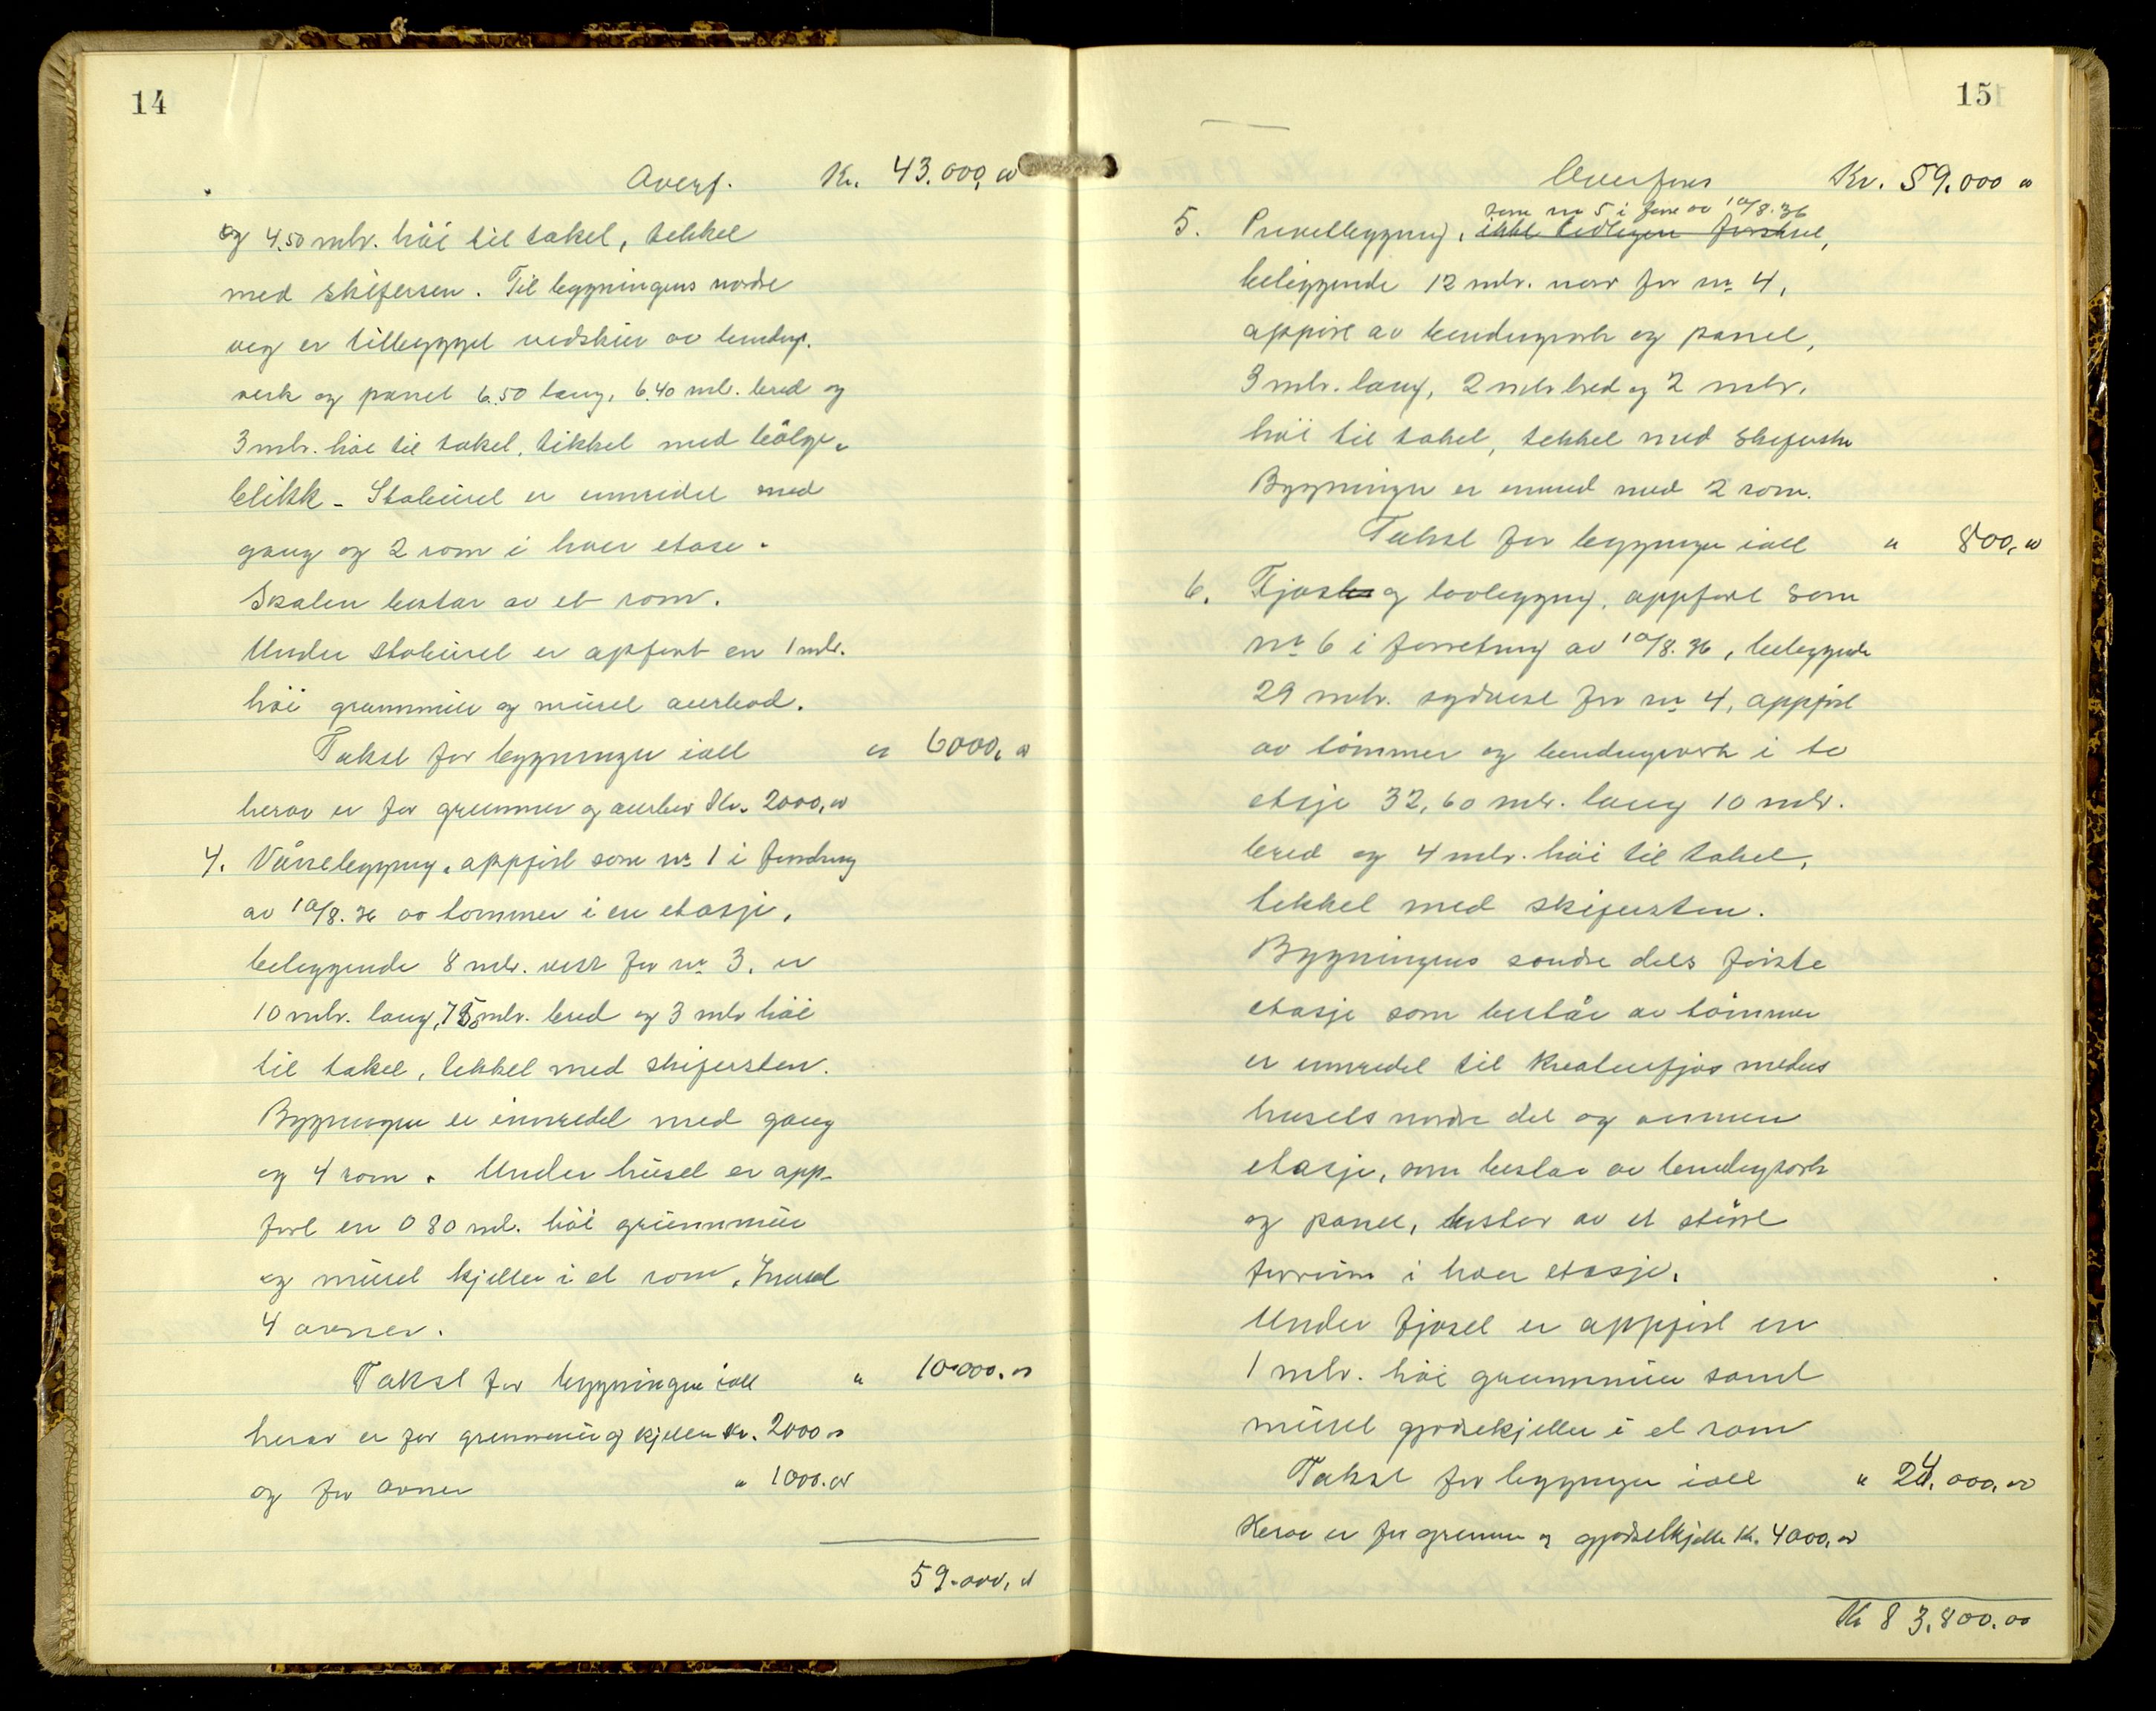 14
Overf. Kr. 43.000,00
og 4,50 mtr. høi til taket, tekket
med skifersten. Til bygningens nordre
veg er tilbygget vedskur av bindings-
verk og panel 6.50 lang, 6.40 mtr. bred og
3 mtr. høi til taket, tekket med bølge-
blikk - Stabburet er innredet med
gang og 2 rom i hver etase.
Skalen bestar av et rom.
Under stabburet er opført en 1 mtr.
høi grunnmur og muret aurbod.
Takst for bygningen ialt " 6000,00
herav er for grunnmur og aurbod Kr. 2000,00
4. Våningsbygning, oppført som nr 1 i forretning
av 10/8.36 av tømmer i en etasje,
beliggende 8 mtr. vest for nr 3, er
10 mtr. lang, 7,50 mtr. bred og 3 mtr høi
til taket, tekket med skifersten.
Bygningen er innredet med gang
og 4 rom. Under huset er opp-
ført en 0 80 mtr. høi grunnmur
og muret kjeller i et rom, Innsat
4 ovner.
Takst for bygningen ialt " 10.000.00
herav er for grunnmur og kjeller Kr. 2000 00
og for ovner " 1000.00
59.000,00
15
Overføres Kr. 59.000 00
som nr 5 i forr av 10/8.36
5. Privetbygning, ikke tidligere forsikret,
beliggende 12 mtr. nord for nr 4,
oppført av bindingsverk og panel,
3 mtr. lang, 2 mtr bred og 2 mtr.
høi til taket, tekket med skifersten
Bygningen er innred med 2 rom.
Takst for bygningen ialt " 800,00
6. Fjøs og lovbygning, oppført som
nr 6 i forretning av 10/8.36, beliggende
29 mtr. sydvest for nr 4, oppført
av tömmer og bindingsverk i to
etasje 32,60 mtr. lang 10 mtr.
bred og 4 mtr. høi til taket,
tekket med skifersten.
Bygningens søndre dels første
etasje som består av tömmer
er innredet til Kreaturfjøs medens
husets nordre del og annen
etasje, som bestar av bindingsverk
og panel, bestar av et større
forrum i hver etasje.
Under fjøset er oppført en
1 mtr. høi grunnmur samt
muret gjødselkjeller i et rom
Takst for bygningen ialt " 24.000,00
Herav er for grunnmur og gjødselkjeller Kr. 4000,00
Kr 83,800.00